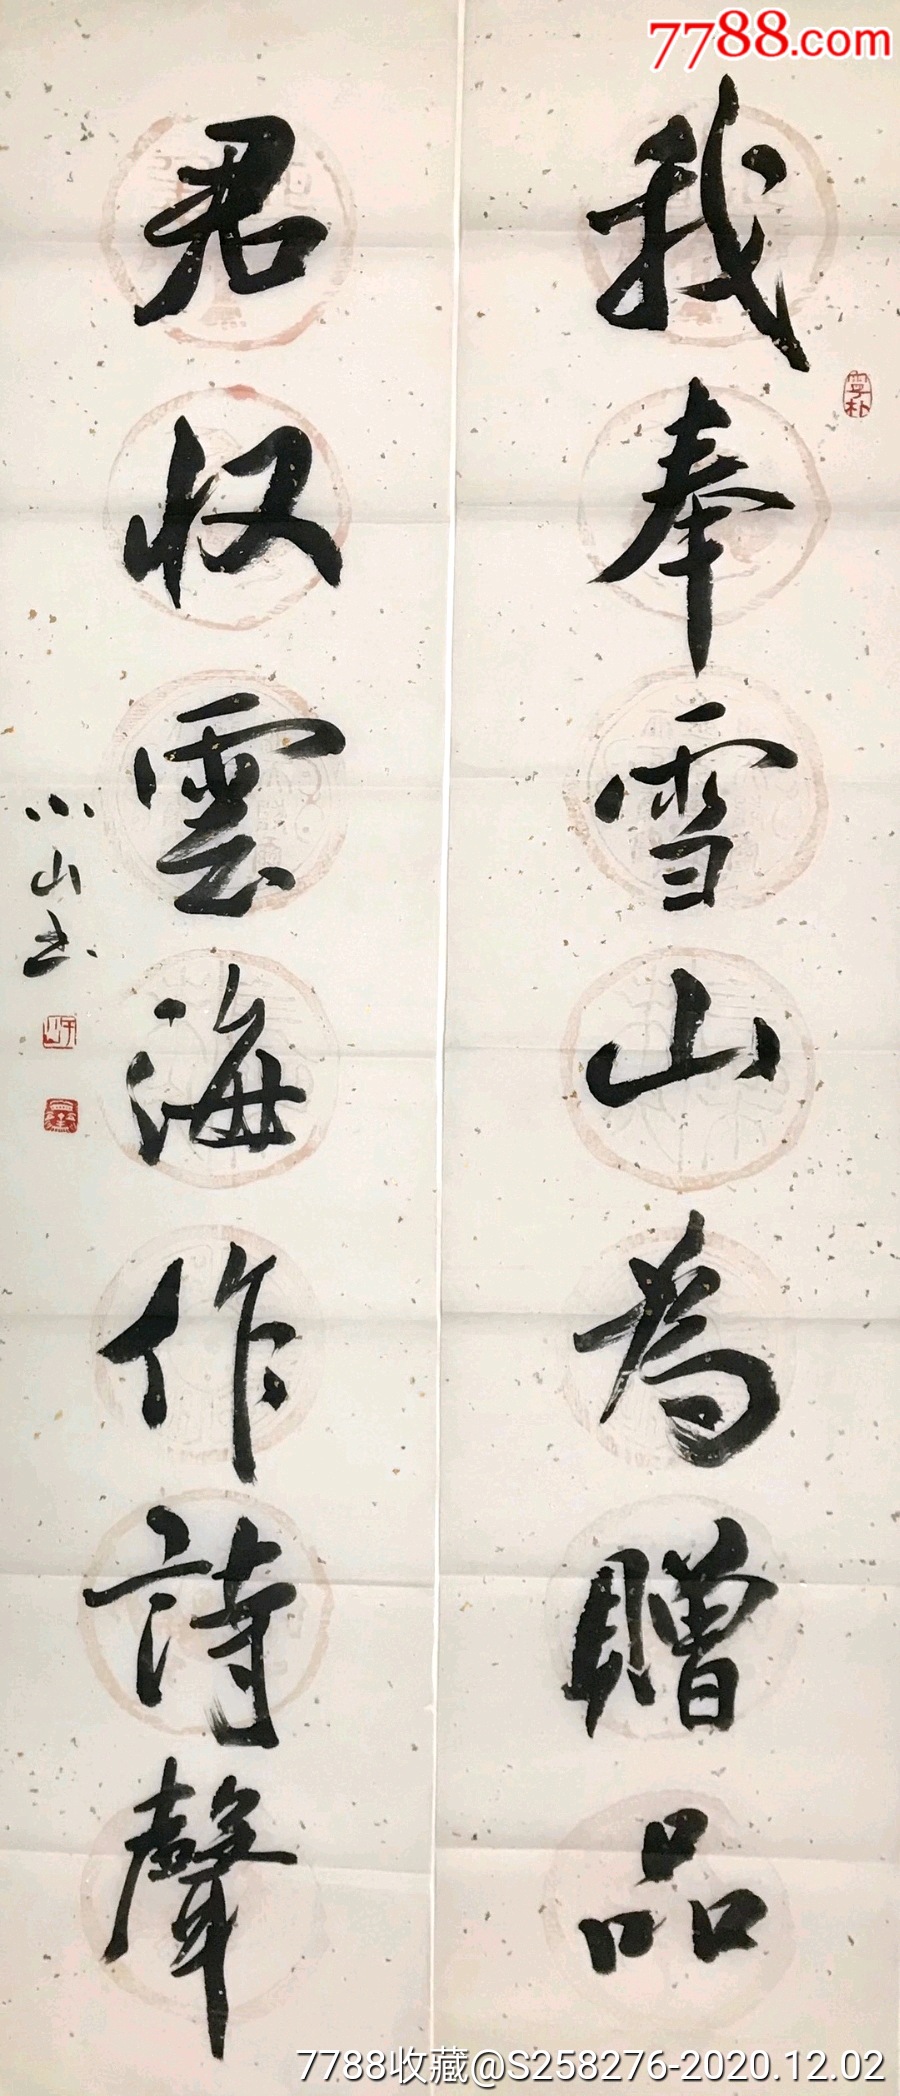 7788.com
我奉雪山为贈品
君収雲海作詩聲
小山书
7788收藏@S258276-2020.12.02